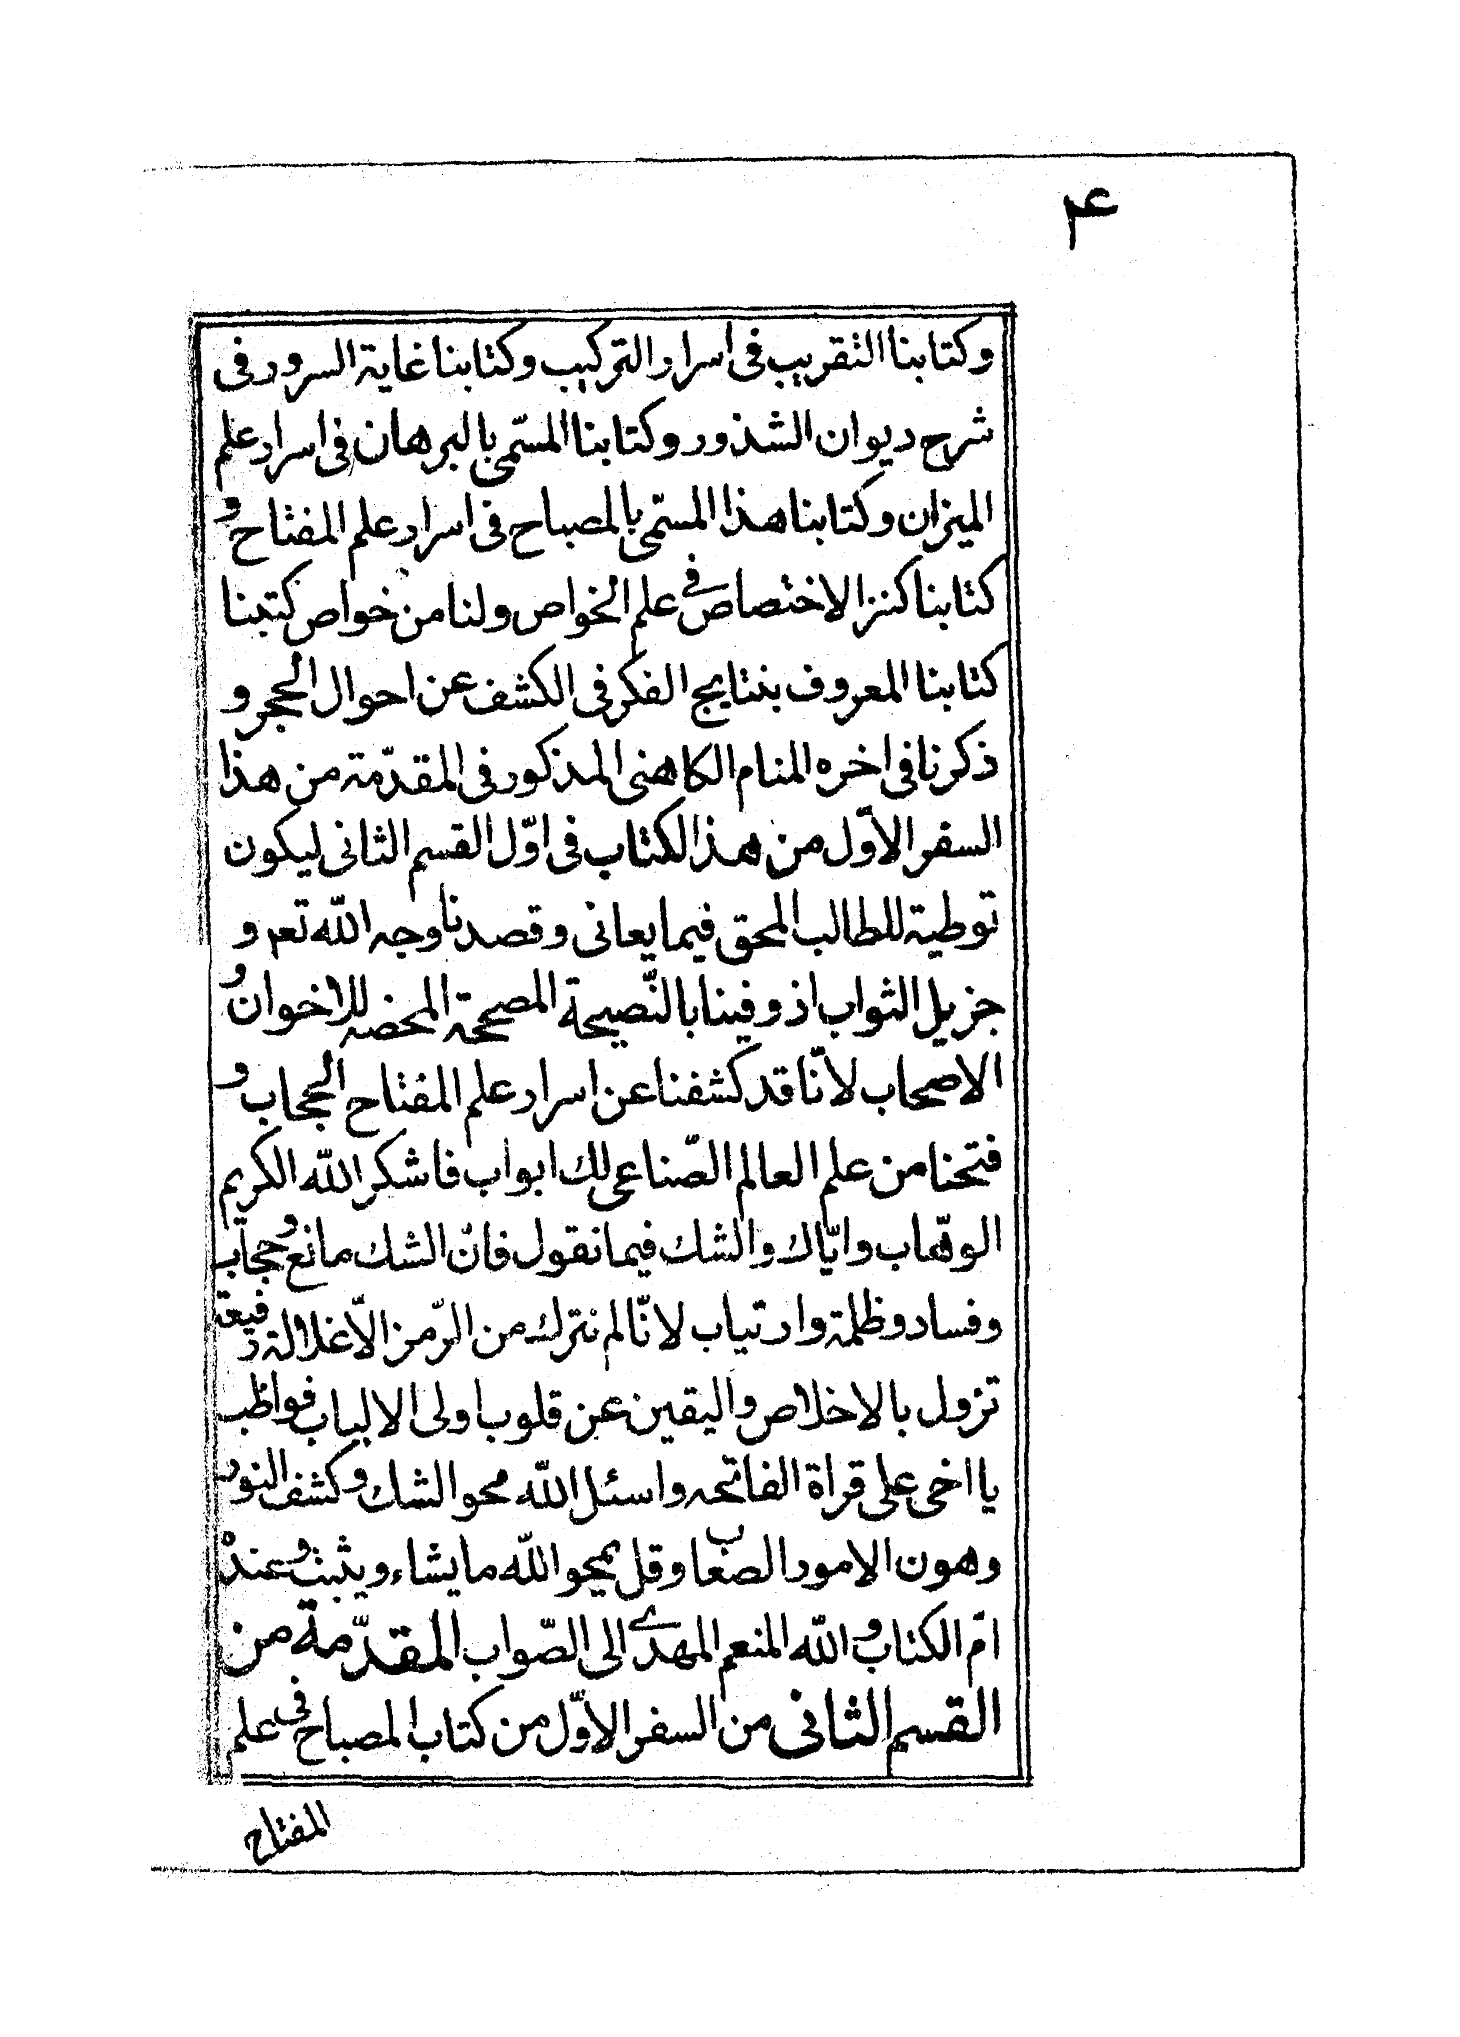 ۴
وكتابنا التقريب فى اسرار التركيب وكتابنا غاية السرور فى
شرح ديوان الشذور وكتابنا المسّمى بالبرهان فى اسرار علم
الميزان وكتابنا هذا المسّمى بالمصباح فى اسرار علم المفتاح و
كتابنا كنز الاختصاص فى علم الخواص ولنا من خواص كتبنا
كتابنا المعروف بنتايج الفكر فى الكشف عن احوال الحجر و
ذكرنا فى اخره المنام الكاهنى المذكور فى المقدّمة من هذا
السفر الاوّل من هذا الكتاب فى اوّل القسم الثانى ليكون
توطية للطالب المحق فيما يعانى وقصدنا وجه اللّه تعم و
جزيل الثواب اذ وفينا بالنّصيحة المصححة المحضه للاخوان و
الاصحاب لانّا قد كشفنا عن اسرار علم المفتاح الحجاب و
فتحنا من علم العالم الصّناعى لك ابواب فاشكر اللّه الكريم
الوهّاب وايّاك والشك فيما نقول فانّ الشك مانع وحجاب
وفساد وظلمة وارتياب لانّا لم نترك من الرّمز الاّ غلالة رفيعة
تزول بالاخلاص واليقين عن قلوب اولى الالباب فواظب
يا اخى على قراة الفاتحه واسئل اللّه محو الشك وكشف النور
وهون الامور الصعاب وقل يمحو اللّه ما يشاء ويثبت وعنده
امّ الكتاب واللّه المنعم المهدى الى الصّواب المقدّمة من
القسم الثانى من السفر الاوّل من كتاب المصباح فى علم
المفتاح